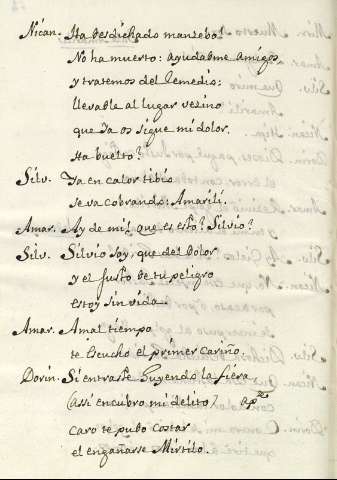 Nican. Ha desdichado manzebo!
No ha muerto: ayudadme amigos
y tratemos del remedio:
llevadle al lugar vezino
que Ya os sigue mi dolor.
Ha buelto?
Silv. Ya en calor tibio
se va cobrando: Amarili.
Amar. Ay de mi! que es esto? Silvio?
Silv. Silvio soy, que del dolor
y el susto de tu peligro
estoy sin vida.
Amar. A mal tiempo
te escucho el primer cariño.
Dorin. Si entraste huyendo la fiera,
(assi encubro mi delito) ap.te
caro te pudo costar
el engañarse Mirtilo.